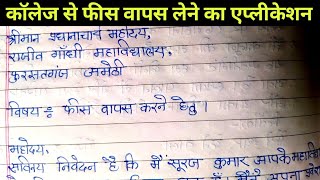 कॉलेज से फीस वापस लेने का एप्लीकेशन
श्रीमान प्रधानाचार्य महोदय,
राजीव गाँधी महाविद्यालय,
फुरसतगंज अमेठी
विषय:- फीस वापस करने हेतु।
महोदय,
सविनय निवेदन है कि मैं सूरज कुमार आपके महावि